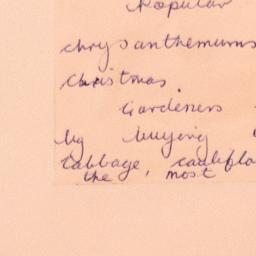 Popular
chrysanthemums
Christmas.
Gardeners
by buying
Cabbage, cauliflo
the, most